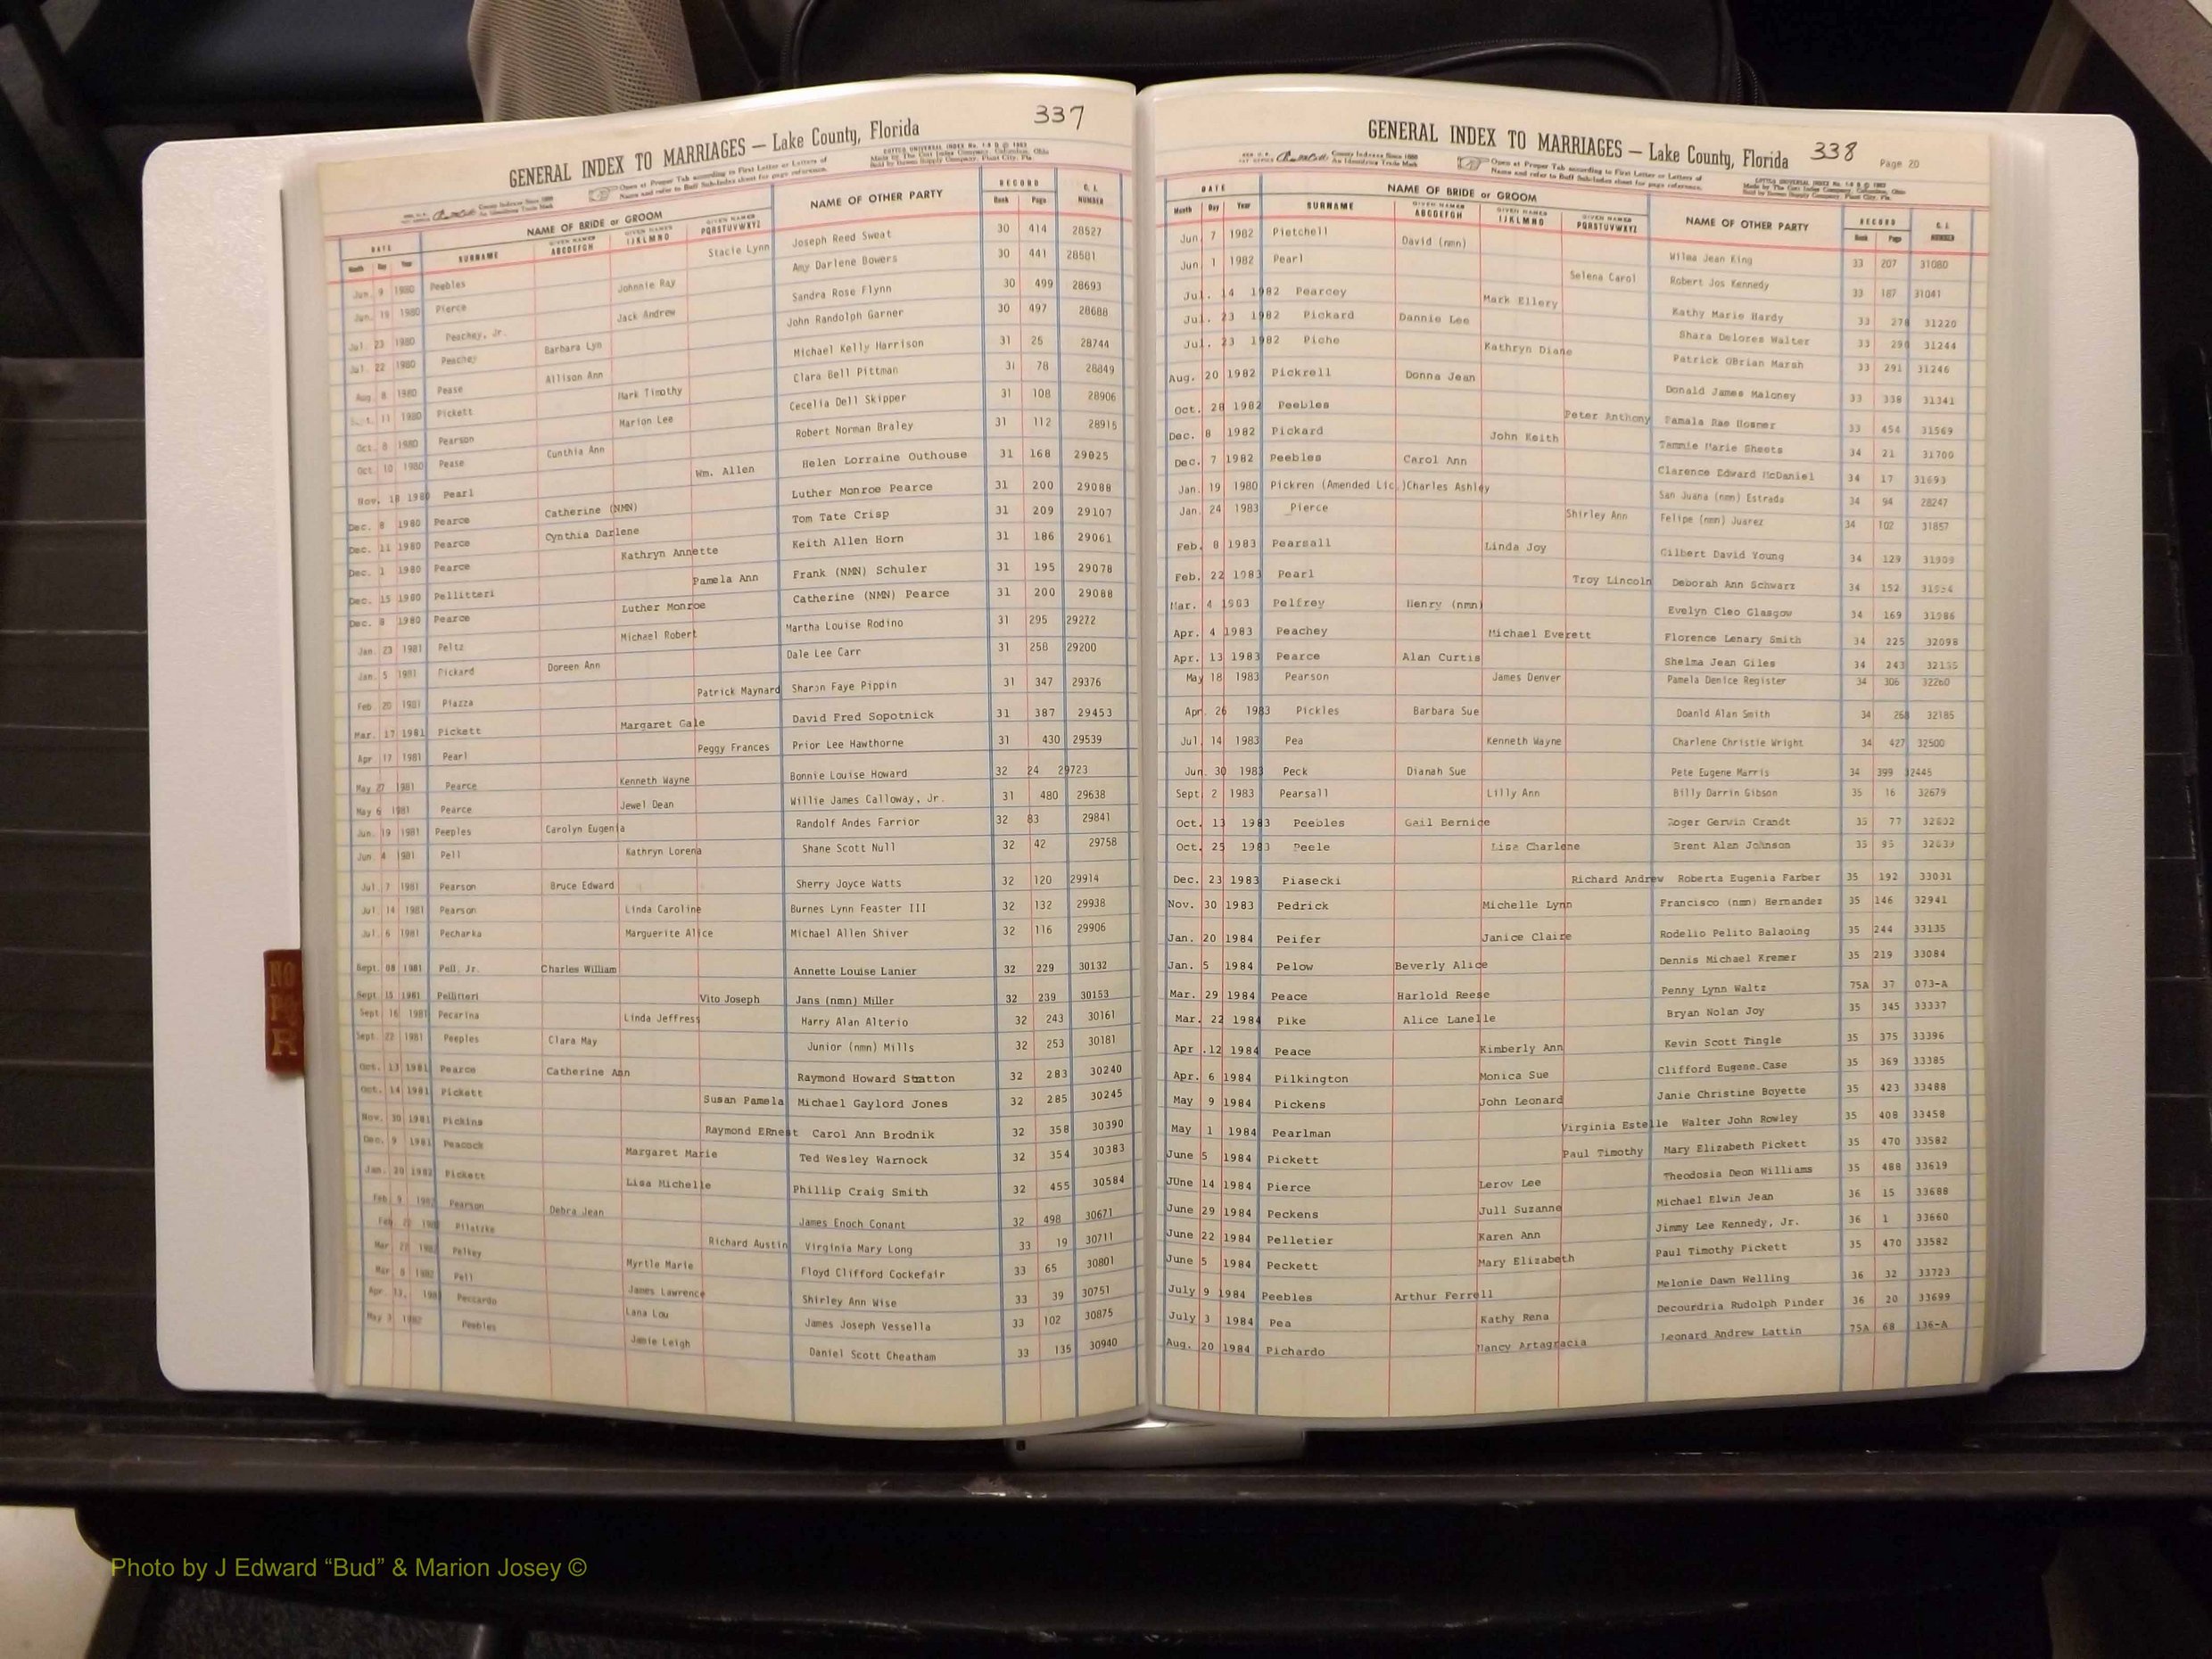 337
GENERAL INDEX TO MARRIAGES — Lake County, Florida
Open at Proper Tab according to First Letter or Letters of
Name and refer to Buff Sub-Index sheet for page reference.
DATE NAME OF BRIDE or GROOM NAME OF OTHER PARTY RECORD C. I. NUMBER
Month Day Year SURNAME GIVEN NAMES ABCDEFGH GIVEN NAMES IJKLMNO GIVEN NAMES PQRSTUVWXYZ Book Page
Jun. 9 1980 Peebles Stacie Lynn Joseph Reed Sweat 30 414 28527
Jun. 19 1980 Pierce Johnnie Ray Amy Darlene Bowers 30 441 28581
Jul. 23 1980 Peachey, Jr. Jack Andrew Sandra Rose Flynn 30 499 28693
Jul. 22 1980 Peachey Barbara Lyn John Randolph Garner 30 497 28688
Aug. 8 1980 Pease Allison Ann Michael Kelly Harrison 31 25 28744
11 1980 Pickett Mark Timothy Clara Bell Pittman 31 78 28849
Oct. 8 1980 Pearson Marion Lee Cecelia Dell Skipper 31 108 28906
Oct. 10 1980 Pease Cunthia Ann Robert Norman Braley 31 112 28915
Nov. 18 1980 Pearl Wm. Allen Helen Lorraine Outhouse 31 168 29025
Dec. 8 1980 Pearce Catherine (NMN) Luther Monroe Pearce 31 200 29088
Dec. 11 1980 Pearce Cynthia Darlene Tom Tate Crisp 31 209 29107
Dec. 1 1980 Pearce Kathryn Annette Keith Allen Horn 31 186 29061
Dec. 15 1980 Pellitteri Pamela Ann Frank (NMN) Schuler 31 195 29078
Dec. 8 1980 Pearce Luther Monroe Catherine (NMN) Pearce 31 200 29088
Jan. 23 1981 Peltz Michael Robert Martha Louise Rodino 31 295 29272
Jan. 5 1981 Pickard Doreen Ann Dale Lee Carr 31 258 29200
Feb 20 1981 Piazza Patrick Maynard Sharon Faye Pippin 31 347 29376
Mar. 17 1981 Pickett Margaret Gale David Fred Sopotnick 31 387 29453
Apr 17 1981 Pearl Peggy Frances Prior Lee Hawthorne 31 430 29539
May 27 1981 Pearce Kenneth Wayne Bonnie Louise Howard 32 24 29723
May 6 1981 Pearce Jewel Dean Willie James Calloway, Jr. 31 480 29638
Jun. 19 1981 Peeples Carolyn Eugenia Randolf Andes Farrior 32 83 29841
Jun 4 1981 Pell Kathryn Lorena Shane Scott Null 32 42 29758
Jul. 7 1981 Pearson Bruce Edward Sherry Joyce Watts 32 120 29914
Jul 14 1981 Pearson Linda Caroline Burnes Lynn Feaster III 32 132 29938
Jul. 6 1981 Pecharka Marguerite Alice Michael Allen Shiver 32 116 29906
Sept. 08 1981 Pell, Jr. Charles William Annette Louise Lanier 32 229 30132
Sept. 15 1981 Pellitteri Vito Joseph Jans (nmn) Miller 32 239 30153
Sept 16 1981 Pecarina Linda Jeffress Harry Alan Alterio 32 243 30161
Sept. 22 1981 Peeples Clara May Junior (nmn) Mills 32 253 30181
Oct. 13 1981 Pearce Catherine Ann Raymond Howard Stratton 32 283 30240
Oct. 14 1981 Pickett Susan Pamela Michael Gaylord Jones 32 285 30245
Nov. 30 1981 Pickins Raymond ERnest Carol Ann Brodnik 32 358 30390
Dec. 9 1981 Peacock Margaret Marie Ted Wesley Warnock 32 354 30383
Jan. 20 1982 Pickett Lisa Michelle Phillip Craig Smith 32 455 30584
Feb 9 1982 Pearson Debra Jean James Enoch Conant 32 498 30671
Feb Pilatzke Richard Austin Virginia Mary Long 33 19 30711
Mar 27 1982 Pelkey Myrtle Marie Floyd Clifford Cockefair 33 65 30801
Mar 8 1982 Pell James Lawrence Shirley Ann Wise 33 39 30751
Apr. 13, Peccardo Lana Lou James Joseph Vessella 33 102 30875
May 3 1982 Peebles Jamie Leigh Daniel Scott Cheatham 33 135 30940
GENERAL INDEX TO MARRIAGES — Lake County, Florida 338 Page 20
Open at Proper Tab according to First Letter or Letters of
Name and refer to Buff Sub-Index sheet for page reference.
DATE NAME OF BRIDE or GROOM NAME OF OTHER PARTY RECORD C. I. NUMBER
Month Day Year SURNAME GIVEN NAMES ABCDEFGH GIVEN NAMES IJKLMNO GIVEN NAMES PQRSTUVWXYZ Book Page
Jun 7 1982 Pietchell David (nmn) Wilma Jean King 33 207 31080
Jun 1 1982 Pearl Selena Carol Robert Jos Kennedy 33 187 31041
Jul. 14 1982 Pearcey Mark Ellery Kathy Marie Hardy 33 278 31220
Jul. 23 1982 Pickard Dannie Lee Shara Delores Walter 33 290 31244
Jul. 23 1982 Piche Kathryn Diane Patrick OBrian Marsh 33 291 31246
Aug. 20 1982 Pickrell Donna Jean Donald James Maloney 33 338 31341
Oct. 28 1982 Peebles Peter Anthony Pamala Rae Hosner 33 454 31569
Dec. 8 1982 Pickard John Keith Tammie Marie Sheets 34 21 31700
Dec. 7 1982 Peebles Carol Ann Clarence Edward McDaniel 34 17 31693
Jan. 19 1980 Pickren (Amended Lic.)Charles Ashley San Juana (nmn) Estrada 34 94 28247
Jan. 24 1983 Pierce Shirley Ann Felipe (nmn) Juarez 34 102 31857
Feb. 8 1983 Pearsall Linda Joy Gilbert David Young 34 129 31909
Feb. 22 1983 Pearl Troy Lincoln Deborah Ann Schwarz 34 152
Mar. 4 1983 Pelfrey Henry (nmn) Evelyn Cleo Glasgow 34 169 31986
Apr. 4 1983 Peachey Michael Everett Florence Lenary Smith 34 225 32098
Apr. 13 1983 Pearce Alan Curtis Shelma Jean Giles 34 243 32135
May 18 1983 Pearson James Denver Pamela Denice Register 34 306 32260
Apr. 26 1983 Pickles Barbara Sue Doanld Alan Smith 34 268 32185
Jul. 14 1983 Pea Kenneth Wayne Charlene Christie Wright 34 427 32500
Jun. 30 1983 Peck Dianah Sue Pete Eugene Marris 34 399 12445
Sept 2 1983 Pearsall Lilly Ann Billy Darrin Gibson 35 16 32679
Oct. 13 1983 Peebles Gail Bernice Roger Gerwin Crandt 35 77
Oct. 25 1983 Peele Lisa Charlene Brent Alan Johnson 35 95
Dec. 23 1983 Piasecki Richard Andrew Roberta Eugenia Farber 35 192 33031
Nov. 30 1983 Pedrick Michelle Lynn Francisco (nmn) Hernandez 35 146 32941
Jan. 20 1984 Peifer Janice Claire Rodelio Pelito Balaoing 35 244 33135
Jan. 5 1984 Pelow Beverly Alice Dennis Michael Kremer 35 219 33084
Mar. 29 1984 Peace Harlold Reese Penny Lynn Waltz 75A 37 073-A
Mar. 22 1984 Pike Alice Lanelle Bryan Nolan Joy 35 345 33337
Apr .12 1984 Peace Kimberly Ann Kevin Scott Tingle 35 375 33396
Apr. 6 1984 Pilkington Monica Sue Clifford Eugene.Case 35 369 33385
May 9 1984 Pickens John Leonard Janie Christine Boyette 35 423 33488
May 1 1984 Pearlman Virginia Estelle Walter John Rowley 35 408 33458
June 5 1984 Pickett Paul Timothy Mary Elizabeth Pickett 35 470 33582
JUne 14 1984 Pierce Lerov Lee Theodosia Deon Williams 35 488 33619
June 29 1984 Peckens Jull Suzanne Michael Elwin Jean 36 15 33688
June 22 1984 Pelletier Karen Ann Jimmy Lee Kennedy, Jr. 36 1 33660
June 5 1984 Peckett Mary Elizabeth Paul Timothy Pickett 35 470 33582
July 9 1984 Peebles Arthur Ferrell Melonie Dawn Welling 36 32 33723
July 3 1984 Pea Kathy Rena Decourdria Rudolph Pinder 36 20 33699
Aug. 20 1984 Pichardo Nancy Artagracia Leonard Andrew Lattin 75A 68 136-A
Photo by J Edward “Bud” & Marion Josey ©